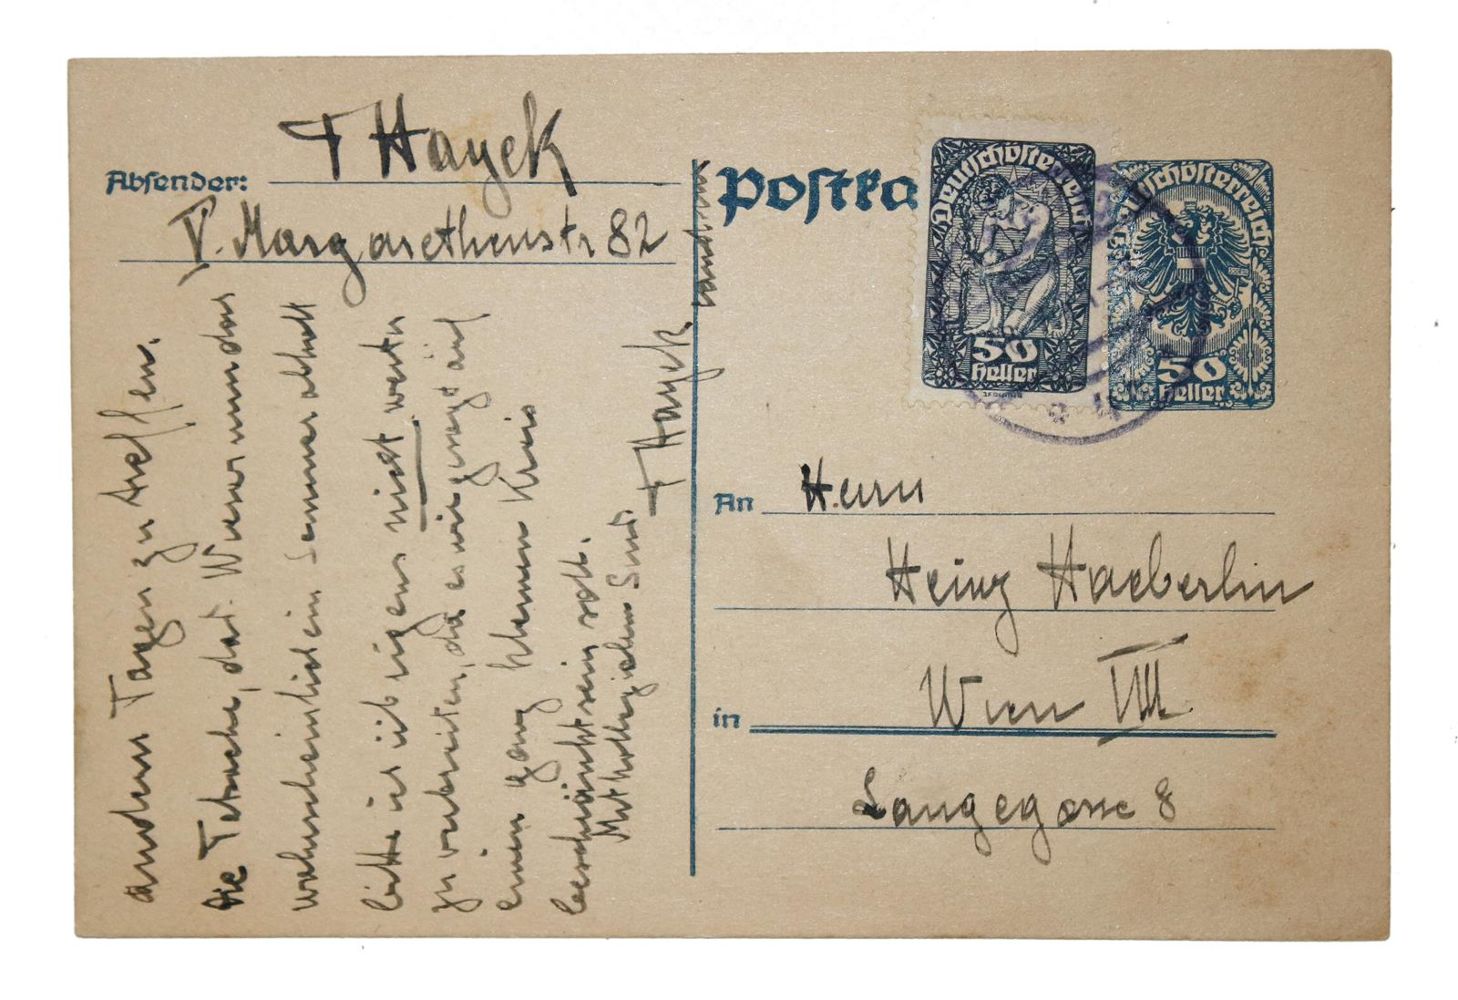 Absender: F Hayek
V. Margarethenstr 82
andern Tagen zu treffen.
Die Tatsache, daß Wieser nun doch
wahrscheinlich ein Seminar abhält
bitte ich übrigens nicht weiter
zu verbreiten, da es wie gesagt auf
einen ganz kleinen Kreis
beschränkt sein soll.
Mit herzlichem
F Hayek
Postka
Deutschösterreich
50
Heller
50
Heller
An Herrn
Heinz Haeberlin
in Wien VIII
Langegasse 8